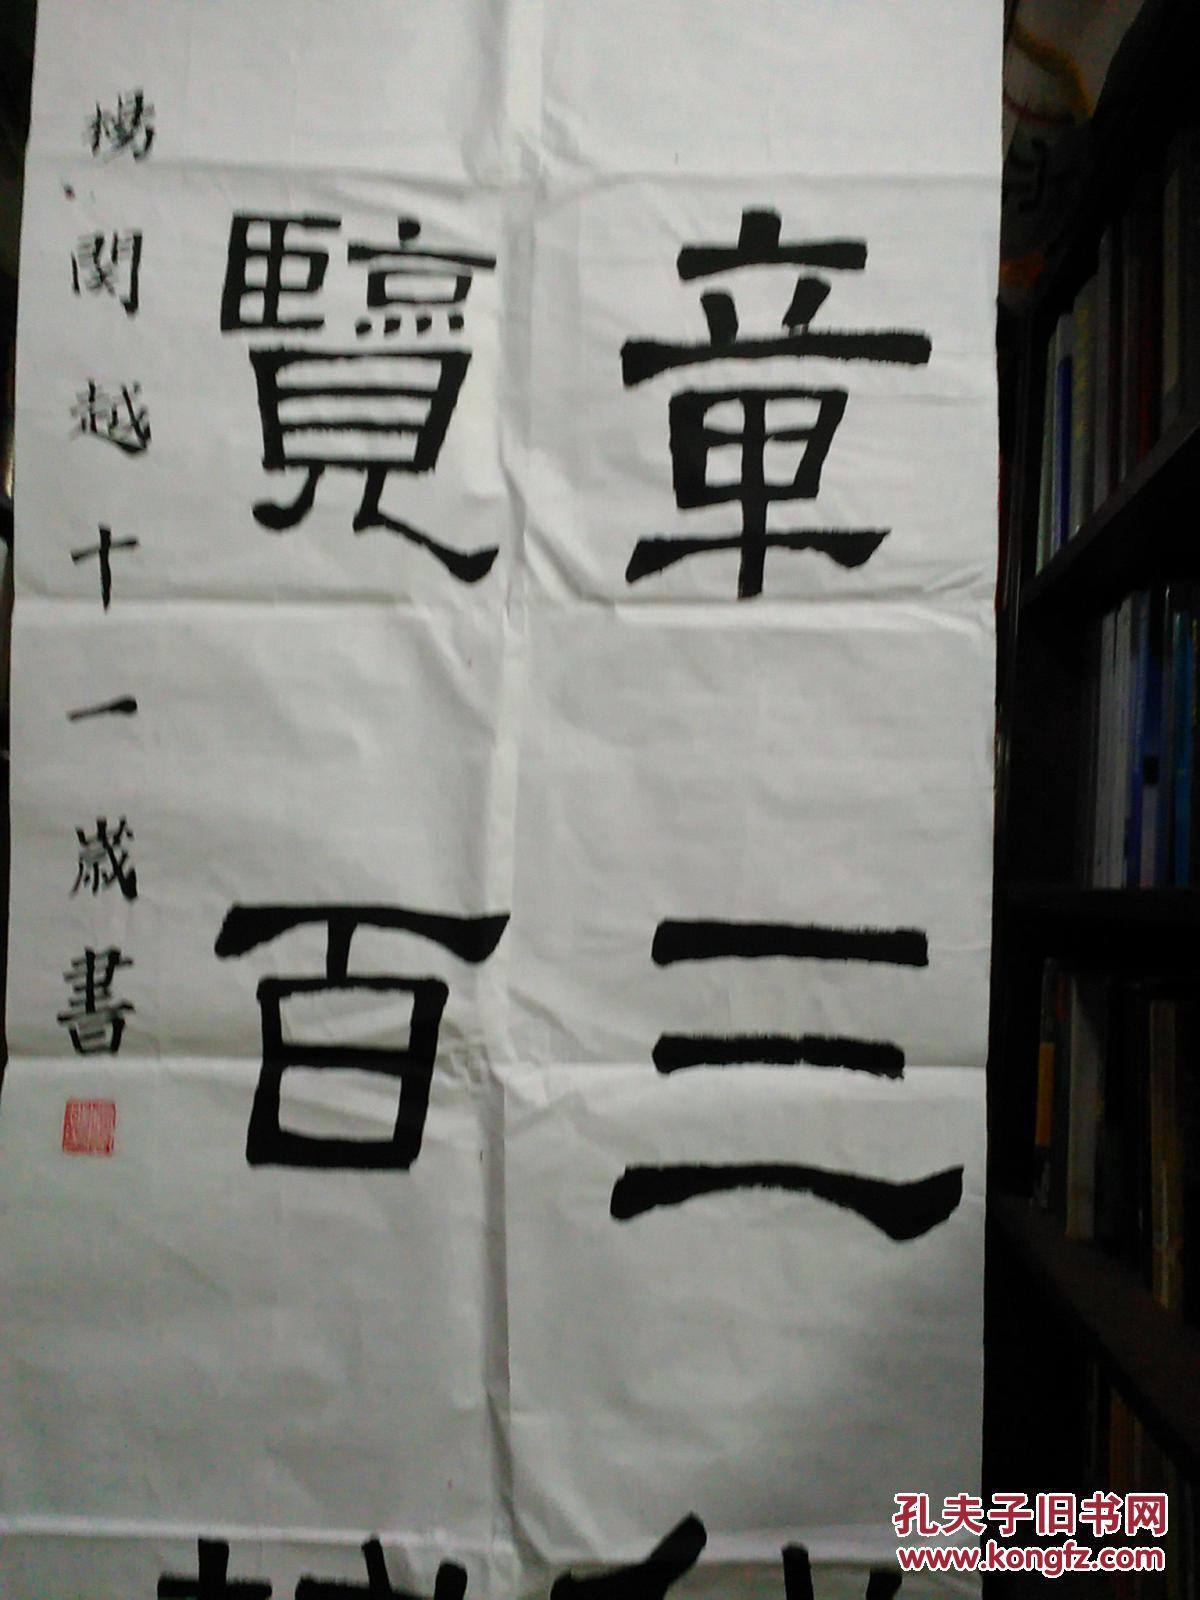 章三
覽百
楊閔越十一歲書
孔夫子旧书网
www.kongfz.com